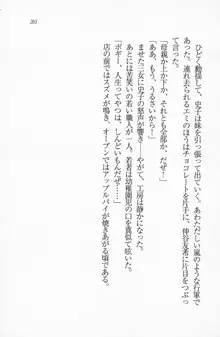 261
ひどく動揺して、史子は妹を引っ張って出ていく。あわただしい嵐のような行軍で
あった。連れ去られるエミのほうはチョコレートを片手に、仲谷友希に片目をつぶっ
て言った。
「母親か上司か、それとも全部か、だぜ!」
「あぁ、もう、うるさいから!」
まざった三女に史子の怒声が響く──やがて、工房は静かになった。
あとには苦笑いの若い職人が一人。若者は幼稚園児の口の真似で呟いた。
「ボギー、人生ってやつは、しんどいもんだぜ……」
店の前ではスズメが鳴き、オーブンではアップルパイが焼きあがる頃である。